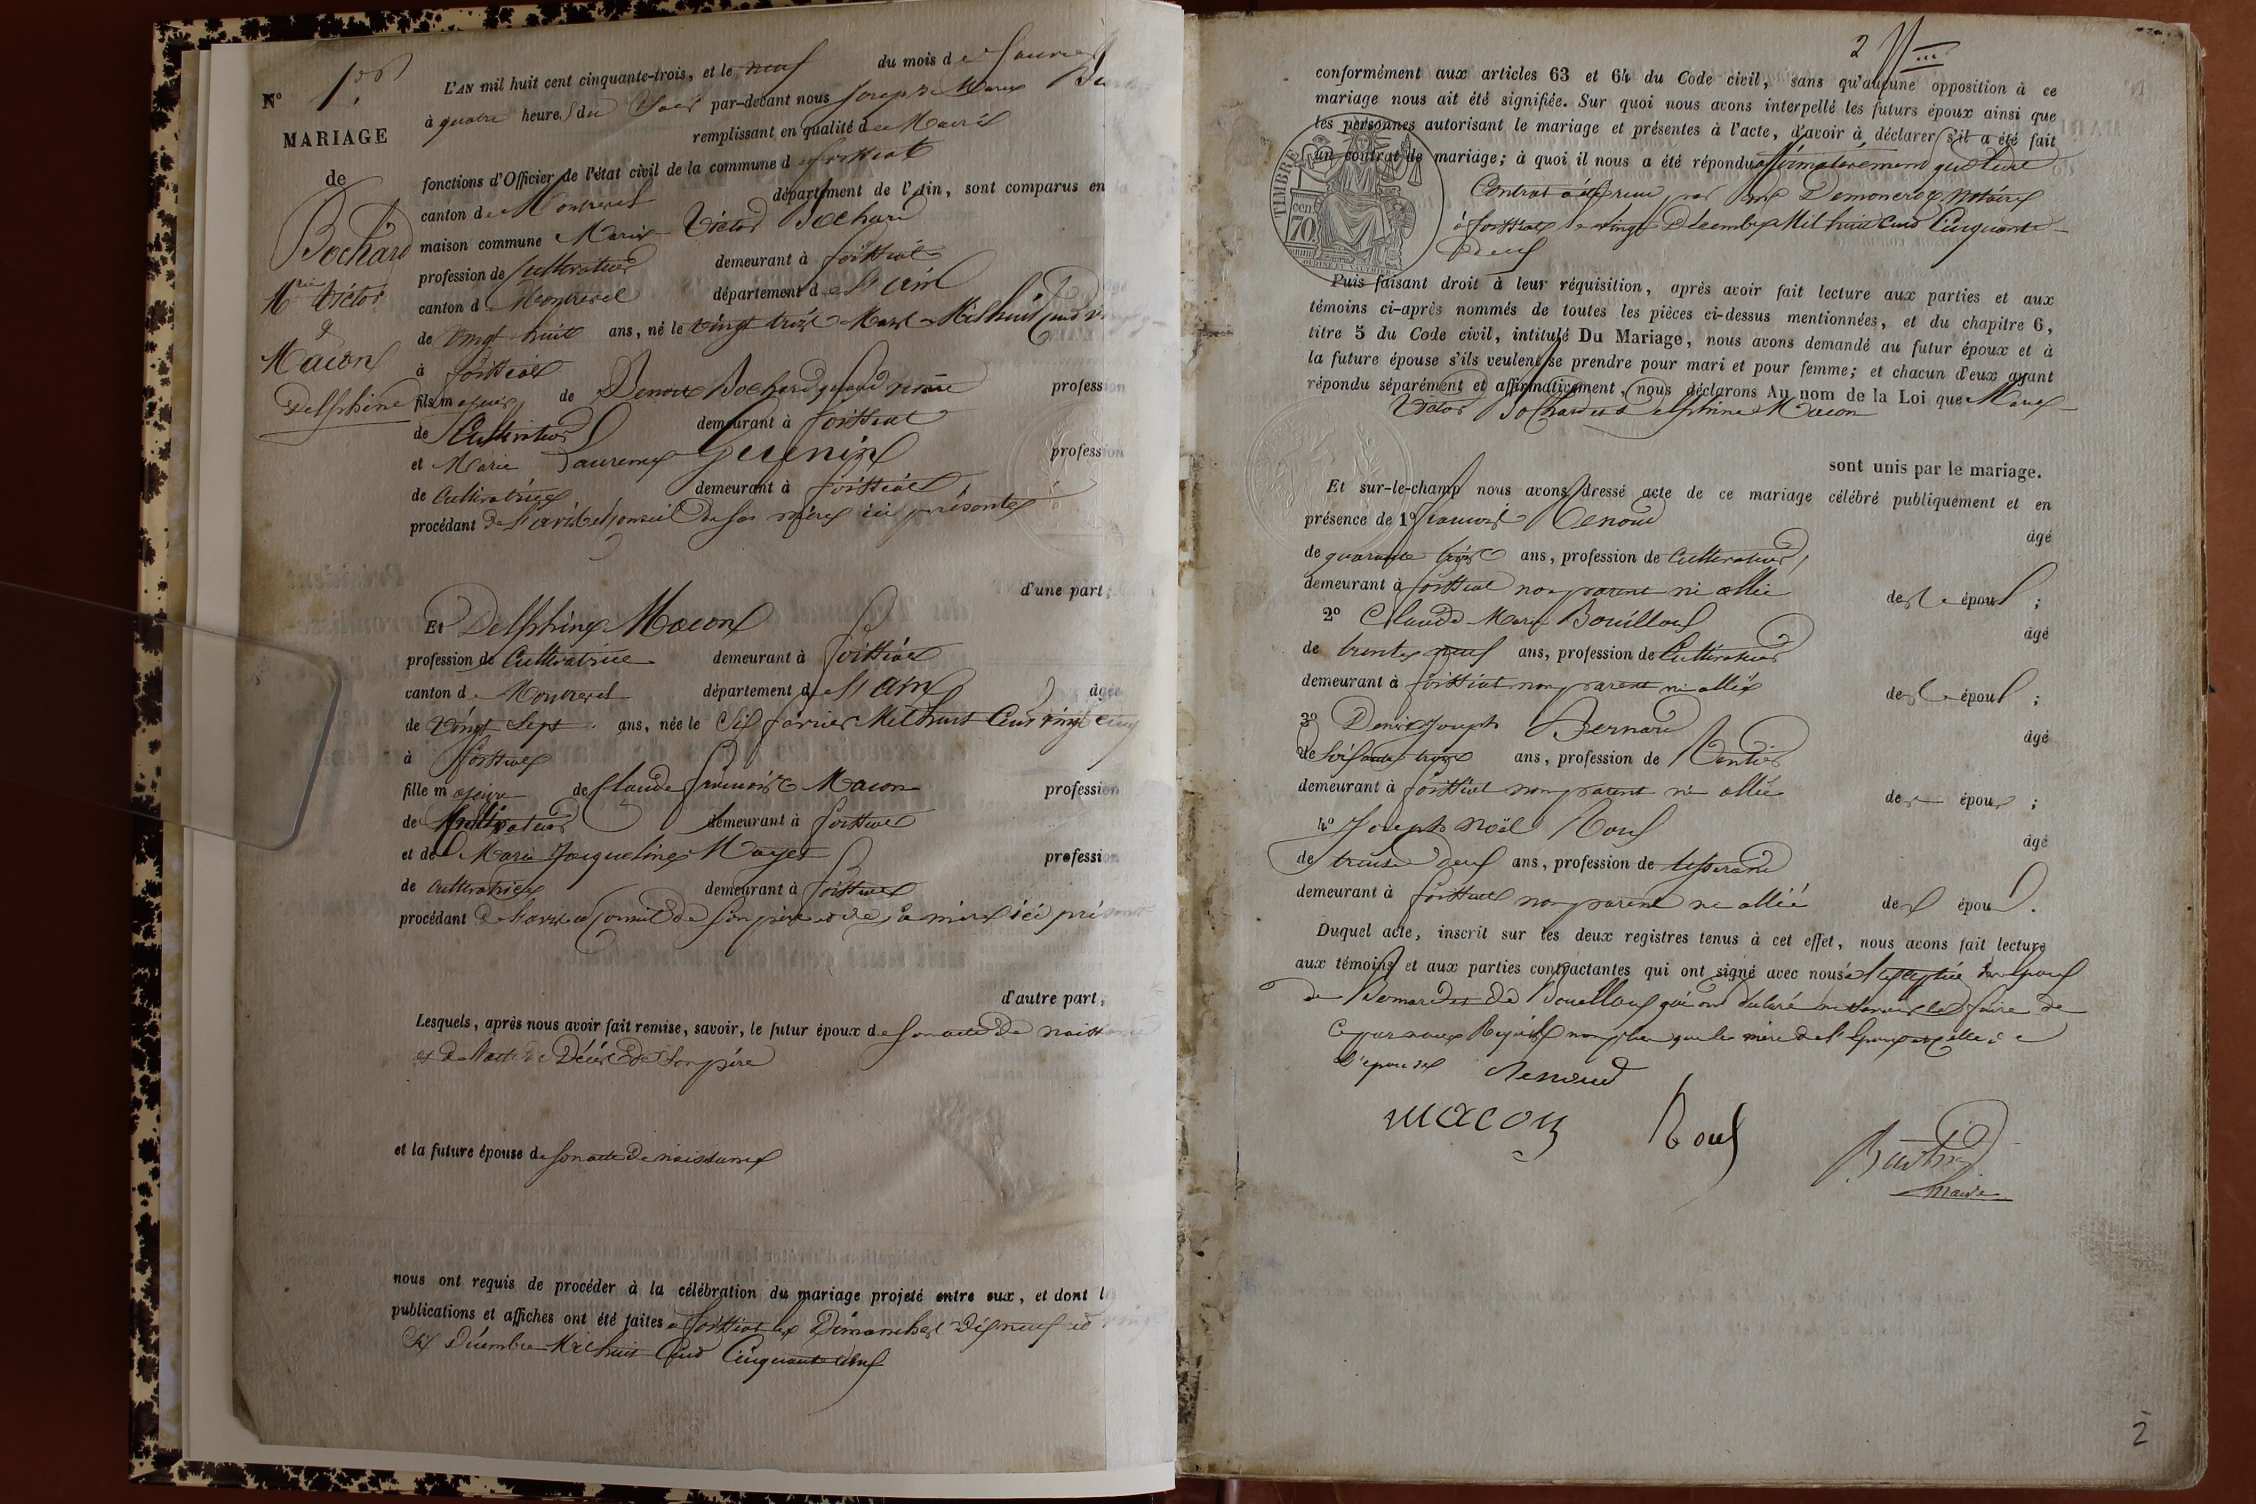 N° 1er
MARIAGE
de
Bochard
Mrie Victor
&
Macon
Delphine
L'AN mil huit cent cinquante-trois, et le neuf du mois de Janvier
à quatre heures du Soir par-devant nous Joseph Marie
remplissant en qualité de Maire
fonctions d'Officier de l'état civil de la commune de foissiat
canton de Montrevel département de l'Ain, sont comparus en
maison commune Marie Victor Bochard
profession de Cultivateur demeurant à foissiat
canton de Montrevel département de l'ain
de vingt huit ans, né le vingt trois Mars Mil huit Cent
à foissiat
fils majeur de Benoit Bochard quand vivait profession
de Cultivateur demeurant à foissiat
et Marie Laurence Guenin profession
de Cultivatrice demeurant à foissiat
procédant de l'avis et conseil de sa mère ici présente
d'une part;
Et Delphine Macon
profession de Cultivatrice demeurant à foissiat
canton de Montrevel département de l'ain âgée
de vingt Sept ans, née le Six février Mil huit Cent vingt cinq
à foissiat
fille majeure de Claude françois Macon profession
de Cultivateur demeurant à foissiat
et de Marie Jacqueline Mayet profession
de Cultivatrice demeurant à foissiat
procédant de l'avis et Conseil de son père et de sa mère ici
d'autre part;
Lesquels, après nous avoir fait remise, savoir, le futur époux de son acte de
et de l'acte de Décès de son père
et la future épouse de son acte de naissance
nous ont requis de procéder à la célébration du mariage projeté entre eux, et dont
publications et affiches ont été faites à foissiat les Dimanches Dix neuf et vingt
Six Décembre Mil huit Cent Cinquante deux
2
conformément aux articles 63 et 64 du Code civil, sans qu'aucune opposition à ce
mariage nous ait été signifiée. Sur quoi nous avons interpellé les futurs époux ainsi que
les personnes autorisant le mariage et présentes à l'acte, d'avoir à déclarer s'il a été fait
un contrat de mariage; à quoi il nous a été répondu affirmativement que leur
Contrat a été reçu par Me Demonerot Notaire
à foissiat le vingt Décembre Mil huit Cent Cinquante
deux
TIMBRE
cen. 70
Puis faisant droit à leur réquisition, après avoir fait lecture aux parties et aux
témoins ci-après nommés de toutes les pièces ci-dessus mentionnées, et du chapitre 6,
titre 5 du Code civil, intitulé Du Mariage, nous avons demandé au futur époux et à
la future épouse s'ils veulent se prendre pour mari et pour femme; et chacun d'eux ayant
répondu séparément et affirmativement, nous déclarons Au nom de la Loi que Marie
Victor Bochard et Delphine Macon
sont unis par le mariage.
Et sur-le-champ nous avons dressé acte de ce mariage célébré publiquement et en
présence de 1° francois Renoud âgé
de quarante trois ans, profession de Cultivateur
demeurant à foissiat non parent ni allié des époux;
2° Claude Marie Bouilloux âgé
de trente neuf ans, profession de Cultivateur
demeurant à foissiat non parent ni allié des époux;
3° Denis Joseph Bernard âgé
de soixante trois ans, profession de Rentier
demeurant à foissiat non parent ni allié des époux;
4° Joseph Noël Roux âgé
de trente deux ans, profession de tisserand
demeurant à foissiat non parent ni allié des époux.
Duquel acte, inscrit sur les deux registres tenus à cet effet, nous avons fait lecture
aux témoins et aux parties contractantes qui ont signé avec nous à l'exception de l'époux
de Bernard et de Bouilloux qui ont déclaré ne savoir le faire de
ce par nous Requis non plus que la mère de l'époux et celle de
l'épouse Renoud
macon Roux
maire
2